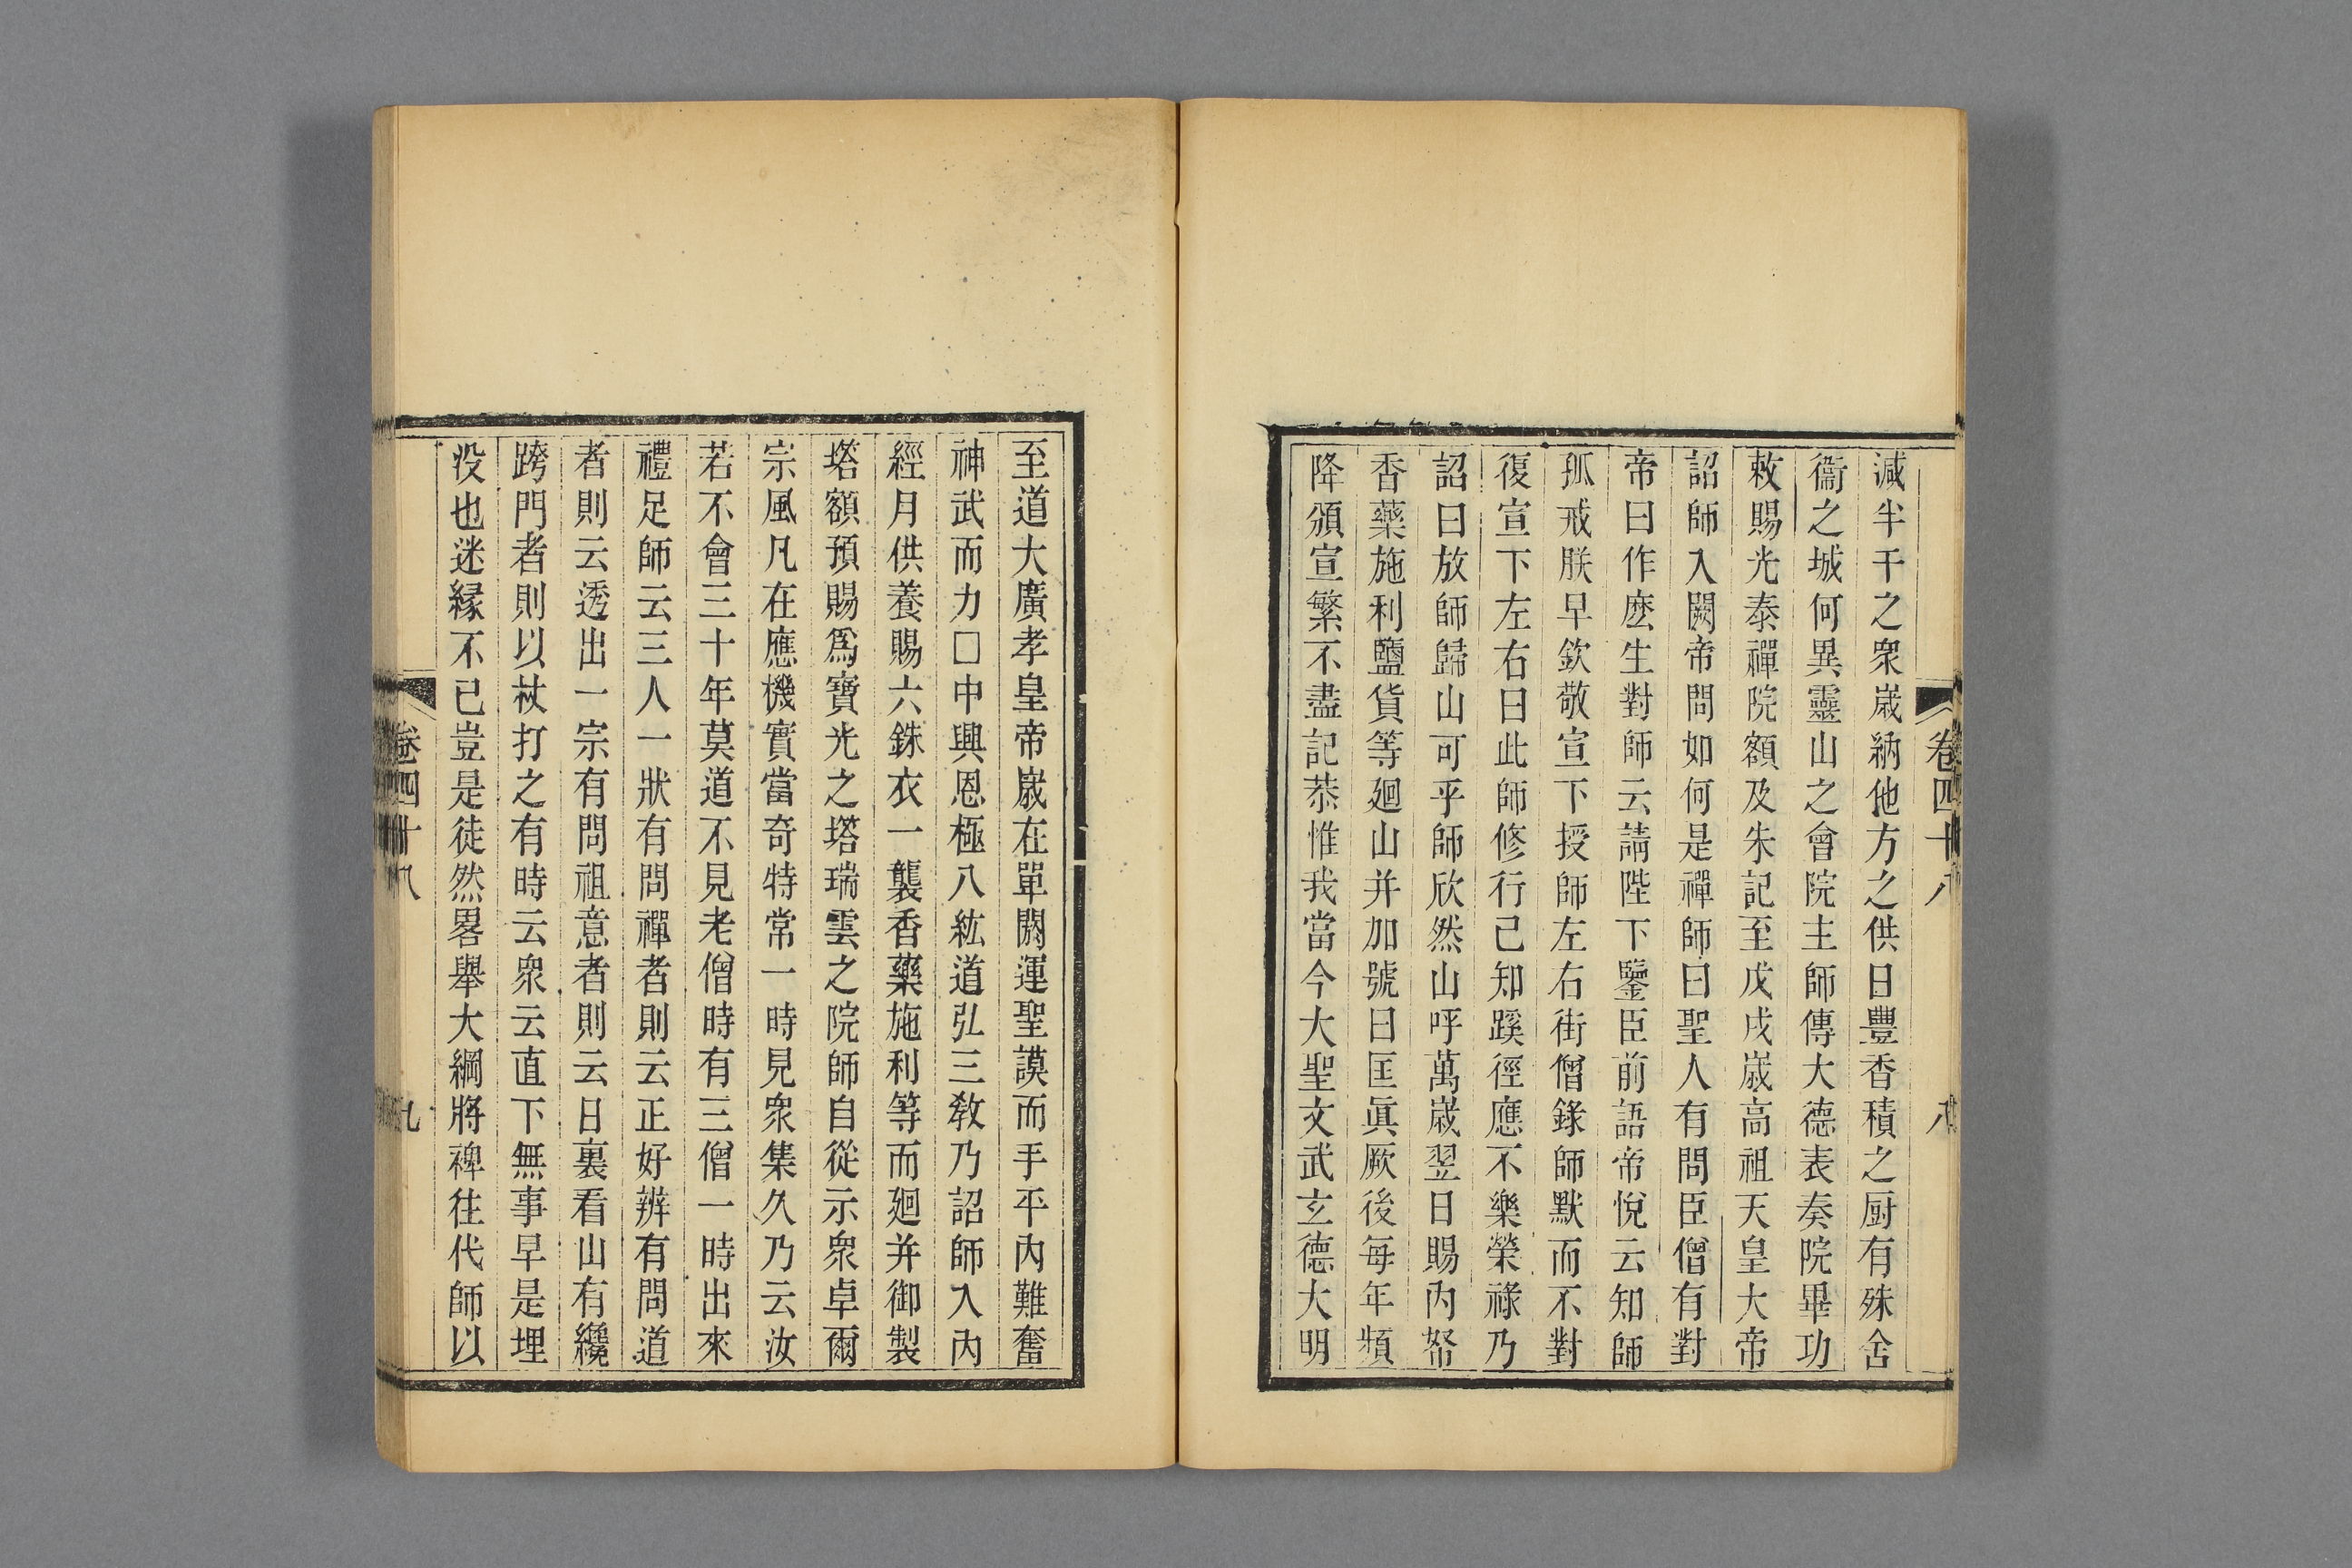 卷四十八
八
減半千之衆嵗納他方之供日豐香積之厨有殊舍
衞之城何異靈山之會院主師傳大德表奏院畢功
敕賜光泰禪院額及朱記至戊戌嵗高祖天皇大帝
詔師入闕帝問如何是禪師曰聖人有問臣僧有對
帝曰作麽生對師云請陛下鑒臣前語帝悅云知師
孤戒朕早欽敬宣下授師左右街僧錄師默而不對
復宣下左右曰此師修行己知蹊徑應不樂榮祿乃
詔曰放師歸山可乎師欣然山呼萬嵗翌日賜內帑
香藥施利鹽貨等廻山并加號曰匡眞厥後每年頻
降頒宣繁不盡記恭惟我當今大聖文武玄德大明
至道大廣孝皇帝嵗在單閼運聖謨而手平內難奮
神武而力□中興恩極八紘道弘三敎乃詔師入內
經月供養賜六銖衣一襲香藥施利等而廻并御製
塔額預賜爲寶光之塔瑞雲之院師自從示衆卓爾
宗風凡在應機實當奇特常一時見衆集久乃云汝
若不會三十年莫道不見老僧時有三僧一時出來
禮足師云三人一狀有問禪者則云正好辨有問道
者則云透出一宗有問祖意者則云日裏看山有纔
跨門者則以杖打之有時云衆云直下無事早是埋
没也迷縁不已豈是徒然畧舉大綱將裨往代師以
卷四十八
九